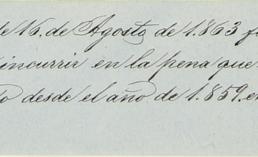 de 16, de Agosto de 1.863 f
incurrir en la pena que
do desde el año de 1.859. en